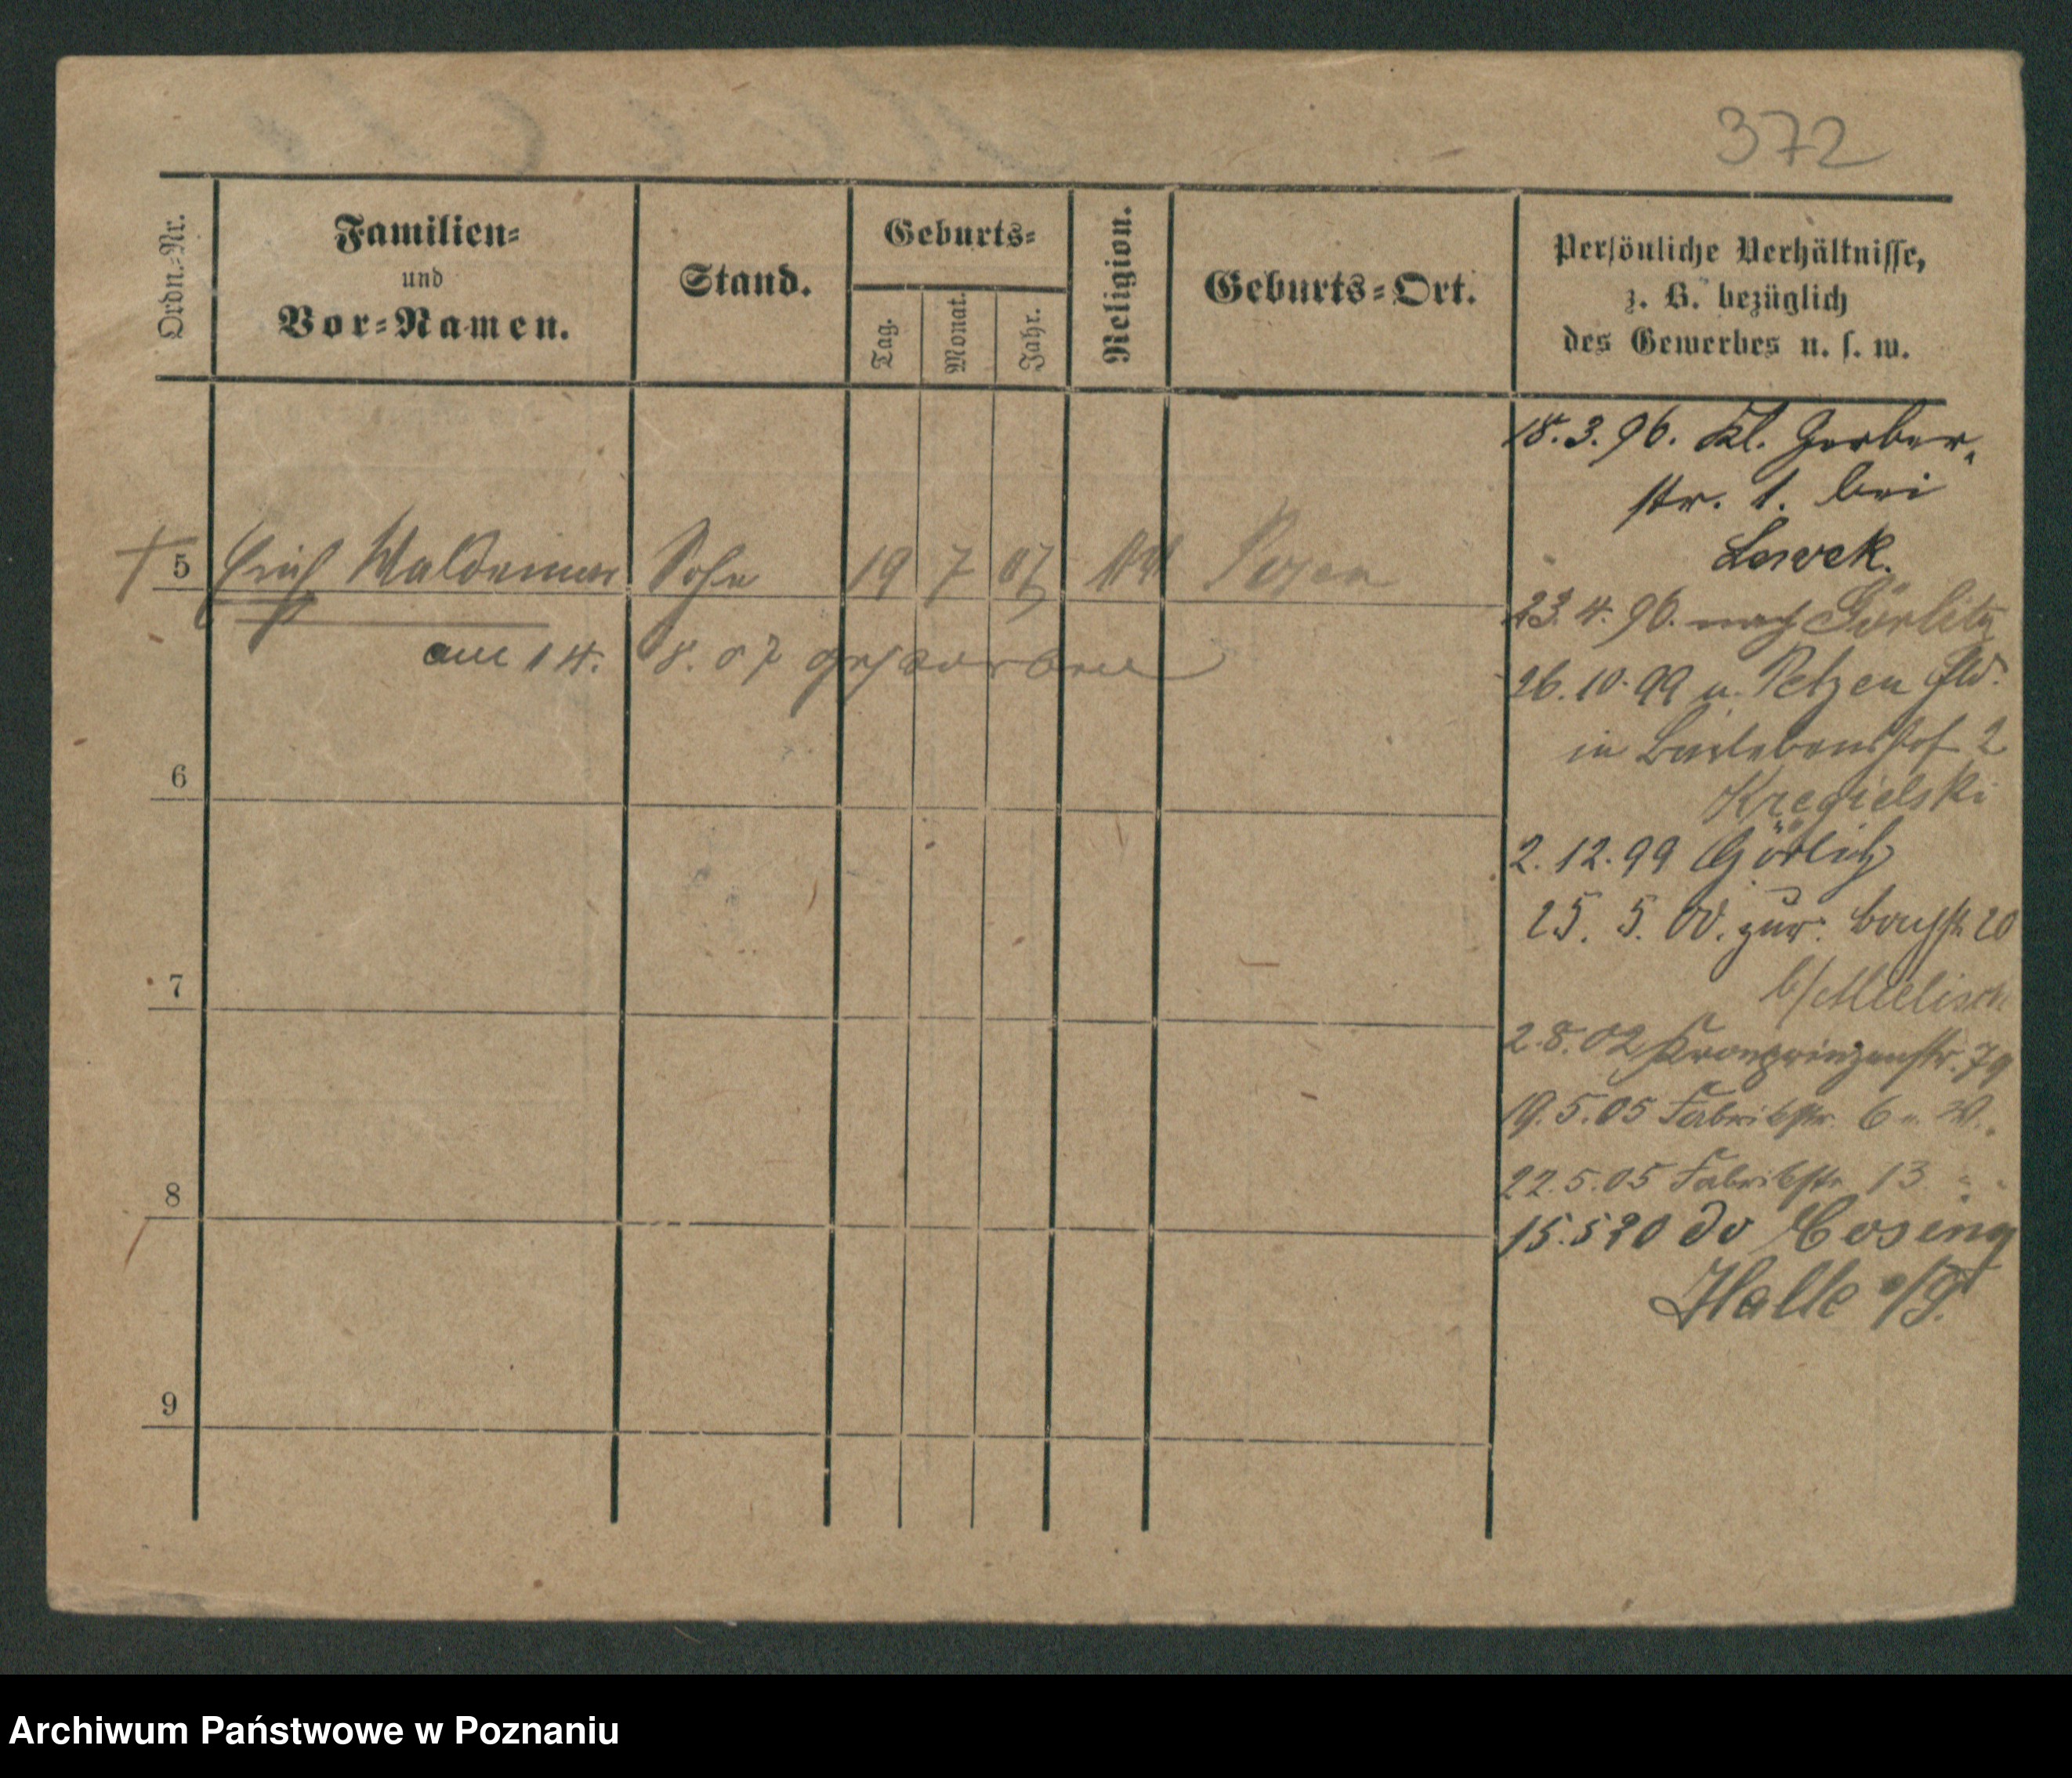 372
Ordn.-Nr.
Familien-
und
Vor-Namen.
Stand.
Geburts-
Tag.
Monat.
Jahr.
Religion.
Geburts-Ort.
Persönliche Verhältnisse,
z. B. bezüglich
des Gewerbes u. s. w.
5 Erich Waldemar Sohn 19 7 07 Posen
am 14. 8. 07 gestorben
6
7
8
9
18.3.96. Kl. Gerber-
str. 1. bei
Lewek.
23.4.96. nach Görlitz
26.10.99 u. Petzen
in 2
Kregielski
2.12.99 Görlitz
25. 5. 00. zur. 20
b/ Mielisch
2.8.02 Kronprinzenstr. 79
19.5.05 Fabrikstr. 6 u. W.
22.5.05 Fabrikstr. 13 "
15.5 20 do Cosing
Halle a/S.
Archiwum Państwowe w Poznaniu